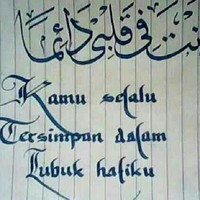 نت في قلبي دائما
Kamu selalu
Tersimpan dalam
Lubuk hatiku